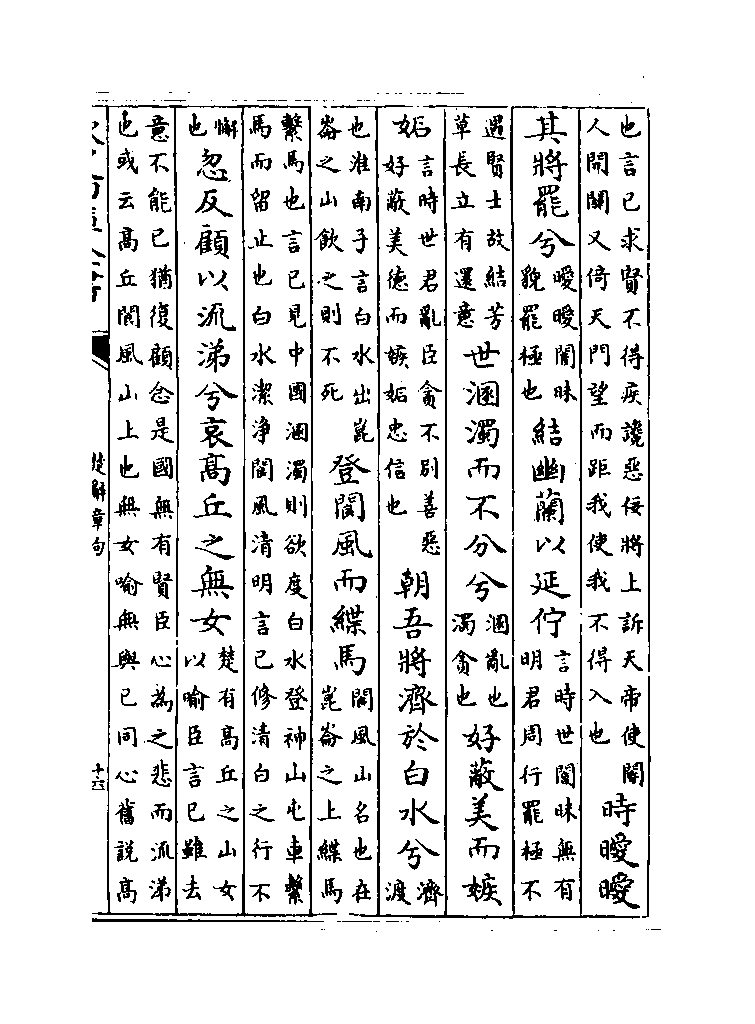 也言已求賢不得疾讒惡佞將上訴天帝使閽人開關又倚天門望而距我使我不得入也時曖曖
其將罷兮曖曖闇昧貌罷極也結幽蘭以延佇言時世闇昧無有明君周行罷極不
遇賢士故結芳草長立有還意世溷濁而不分兮溷亂也濁貪也好蔽美而嫉
妬言時世君亂臣貪不別善惡好蔽美德而嫉妬忠信也朝吾將濟於白水兮濟渡
也淮南子言白水出崑崙之山飲之則不死登閬風而緤馬閬風山名也在崑崙之上緤馬
繫馬也言已見中國溷濁則欲度白水登神山屯車繫馬而留止也白水潔净閬風清明言已修清白之行不
懈也忽反顧以流涕兮哀髙丘之無女楚有髙丘之山女以喻臣言已雖去
意不能已猶復顧念是國無有賢臣心為之悲而流涕也或云髙丘閬風山上也無女喻無與已同心舊說髙
楚辭章句
十六